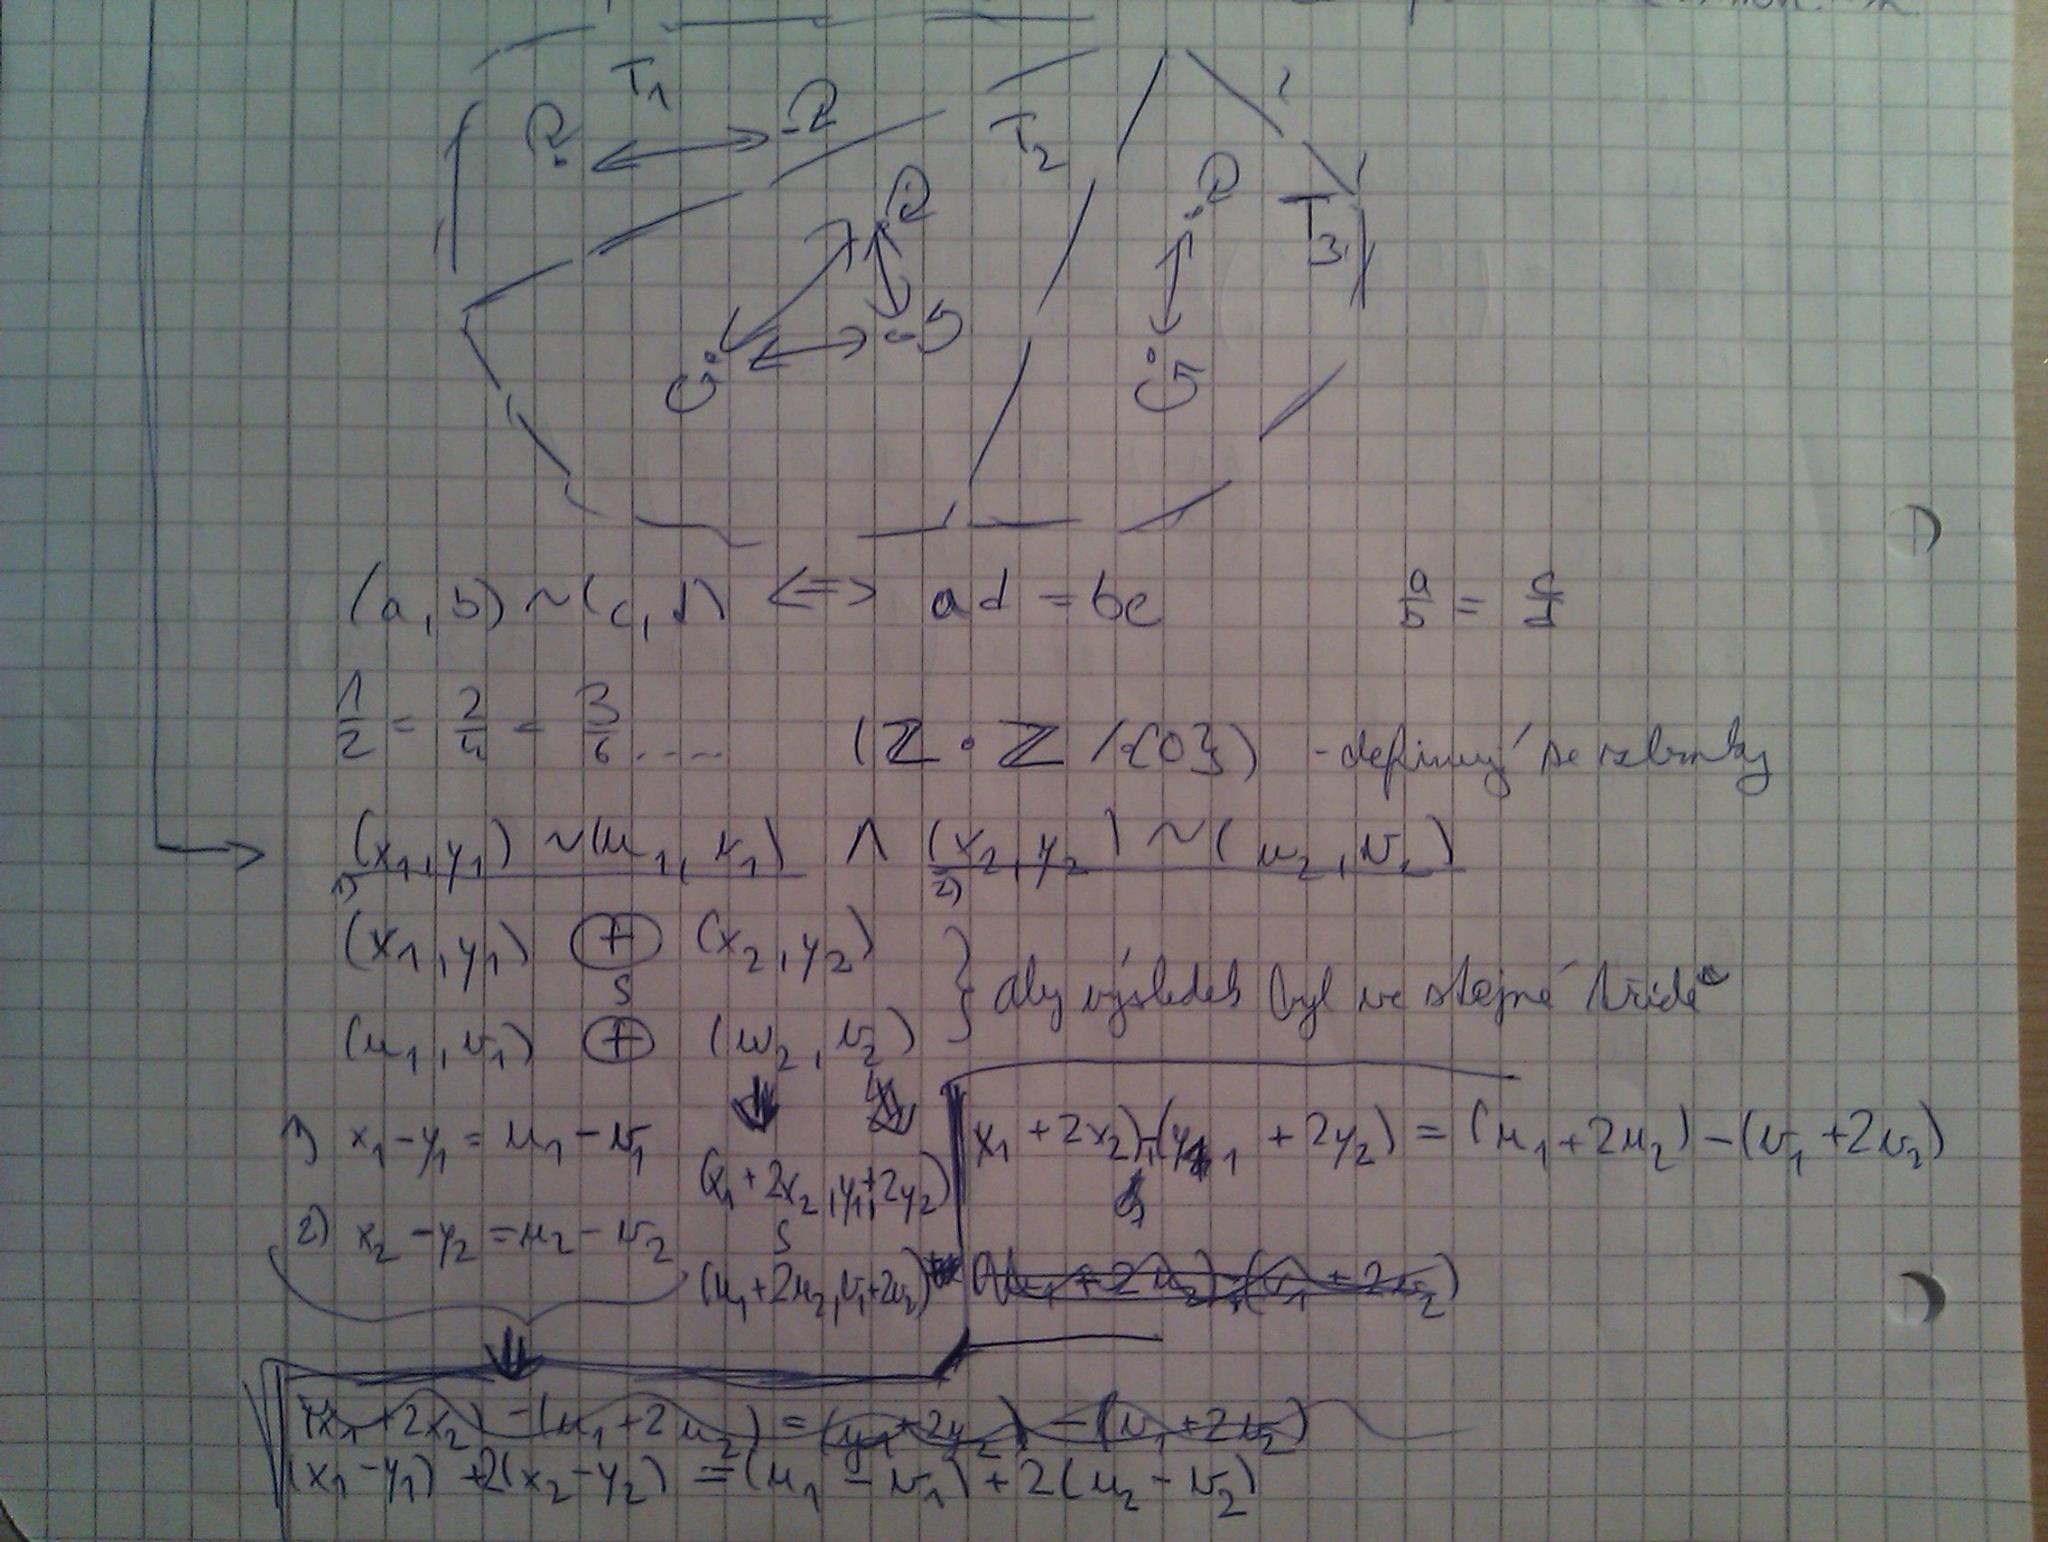 T₁
T₂
T₃
(a, b) ~ (c, d) <=> ad = bc
a/b = c/d
1/2 = 2/4 = 3/6 ....
(ℤ · ℤ /{0}) - definují se zlomky
(x₁, y₁) ~ (u₁, v₁) ∧ (x₂, y₂) ~ (u₂, v₂)
1) 2)
(x₁, y₁) ⊕ (x₂, y₂)
S
(u₁, v₁) ⊕ (u₂, v₂)
} aby výsledek byl ve stejné třídě
1) x₁ - y₁ = u₁ - v₁
2) x₂ - y₂ = u₂ - v₂
(x₁ + 2x₂, y₁ + 2y₂)
S
(u₁ + 2u₂, v₁ + 2v₂)
x₁ + 2x₂) - (y₁ + 2y₂) = (u₁ + 2u₂) - (v₁ + 2v₂)
(u₁ + 2u₂) - (v₁ + 2v₂)
(x₁ + 2x₂) - (u₁ + 2u₂) = (y₁ + 2y₂) - (v₁ + 2v₂)
(x₁ - y₁) + 2(x₂ - y₂) = (u₁ - v₁) + 2(u₂ - v₂)